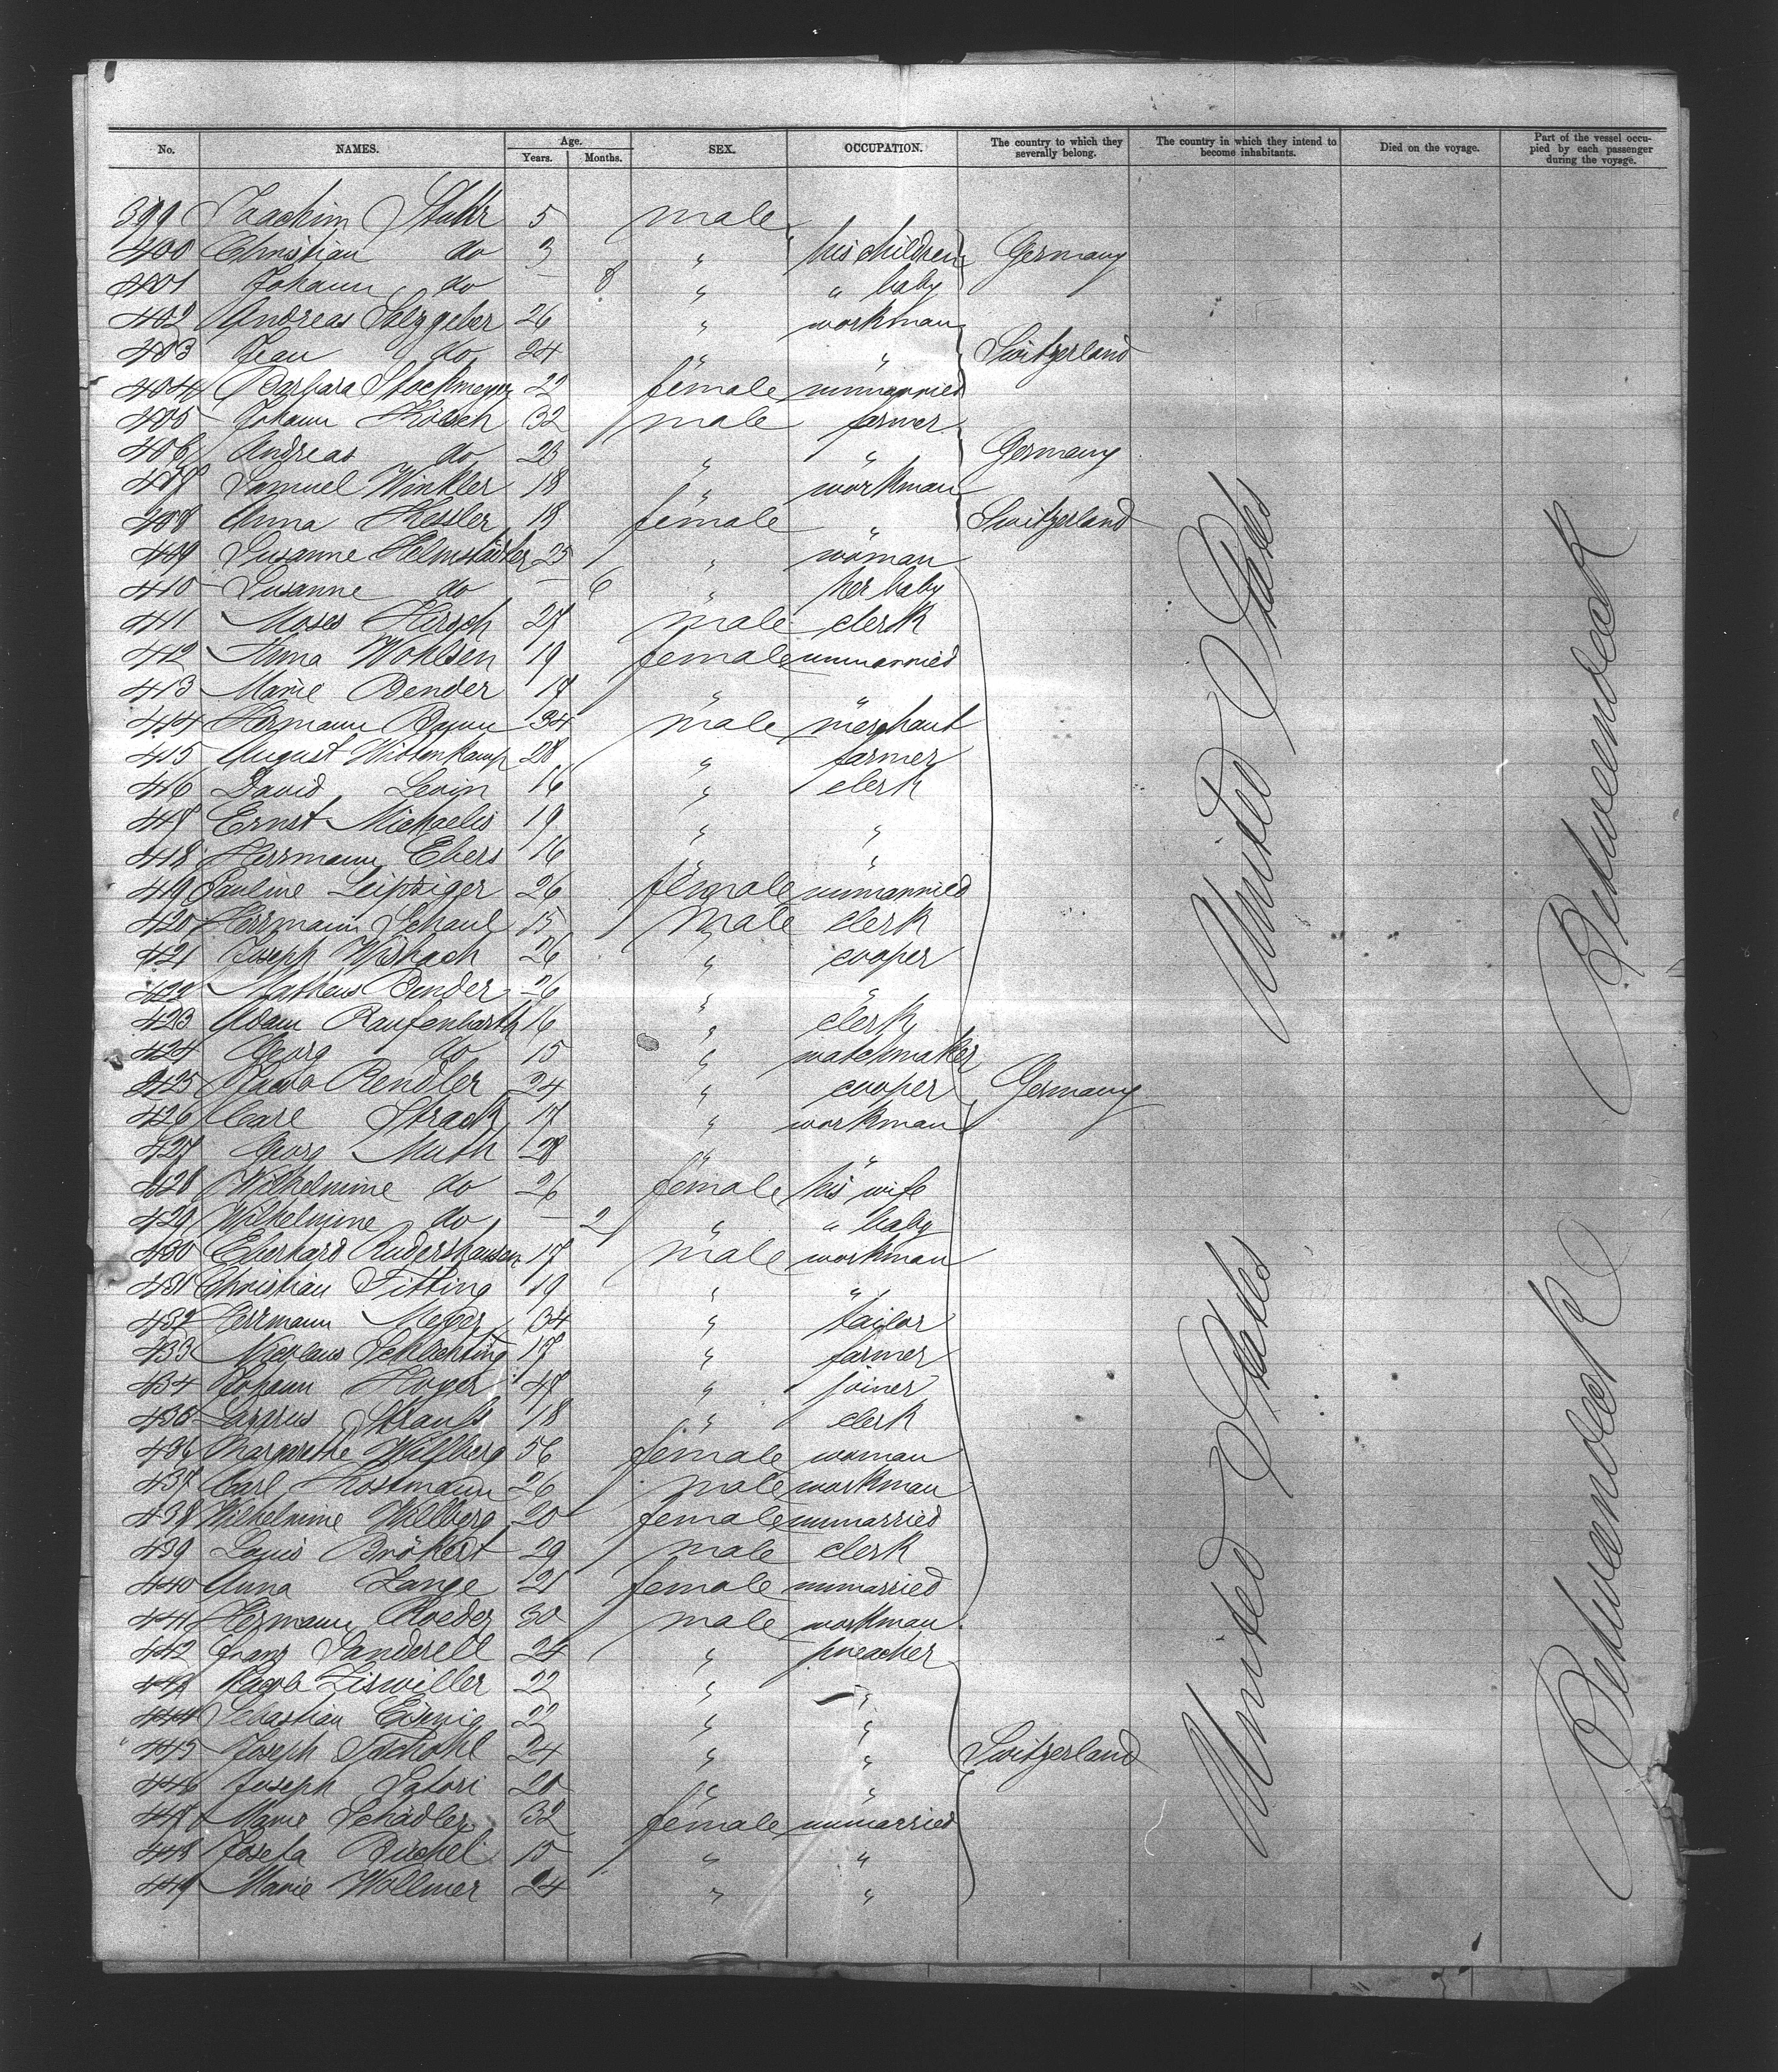 No. NAMES. Age. Years. Months. SEX. OCCUPATION. The country to which they severally belong. The country in which they intend to become inhabitants. Died on the voyage. Part of the vessel occupied by each passenger during the voyage.
399 Joachim Stuhr 5 male
400 Christian do 3 " his children Germany
401 Johann do — 8 " " baby
402 Andreas Salzgeber 26 " workman
403 Jean do 24 " " Switzerland
404 Barbara Stockmeyer 22 female unmarried
405 Johann Kölsch 32 male farmer
406 Andreas do 23 " " Germany
407 Samuel Winkler 18 " workman
408 Anna Kessler 18 female " Switzerland
409 Susanne Helmstädter 25 " woman
410 Susanne do — 6 " her baby
411 Moses Hirsch 27 male clerk
412 Anna Wohlsen 19 female unmarried
413 Marie Bender 17 " "
414 Hermann 34 male merchant
415 August Wittenkamp 28 " farmer
416 David Levin 16 " clerk
417 Ernst Michaelis 19 " "
418 Herrmann Ebers 16 " "
419 Pauline Leipziger 26 female unmarried
420 Herrmann Schaul 15 male clerk
421 Joseph Wisbach 26 " cooper
422 Matheus Bender 26 " "
423 Adam Raufenbarth 16 " clerk
424 Georg do 15 " watchmaker
425 Rendler 24 " cooper Germany
426 Carl Strack 17 " workman
427 Georg Muth 28 " "
428 Wilhelmine do 26 female his wife
429 Wilhelmine do — 2 " " baby
430 Eberhard Rudershausen 17 male workman
431 Christian Fitting 19 " "
432 Herrmann Meyer 34 " tailor
433 Nicolaus Schlichting 17 " farmer
434 Johann Hoyer 47 " joiner
435 Lazarus Strauß 18 " clerk
436 Margarethe Willberg 56 female woman
437 Carl Kostmann 26 male workman
438 Wilhelmine Willberg 20 female unmarried
439 Louis Brökert 29 male clerk
440 Anna Lange 21 female unmarried
441 Hermann Roeder 30 male workman
442 Franz Sanderell 24 " preacher
443 Jacob Liswiller 22 " "
444 Sebastian 22 " "
445 Joseph 24 " " Switzerland
446 Joseph Satori 20 " "
447 Marie Schädler 32 female unmarried
448 Josefa Büchel 15 " "
449 Marie Wollmer 24 " "
United States
United States
Betweendeck
Betweendeck